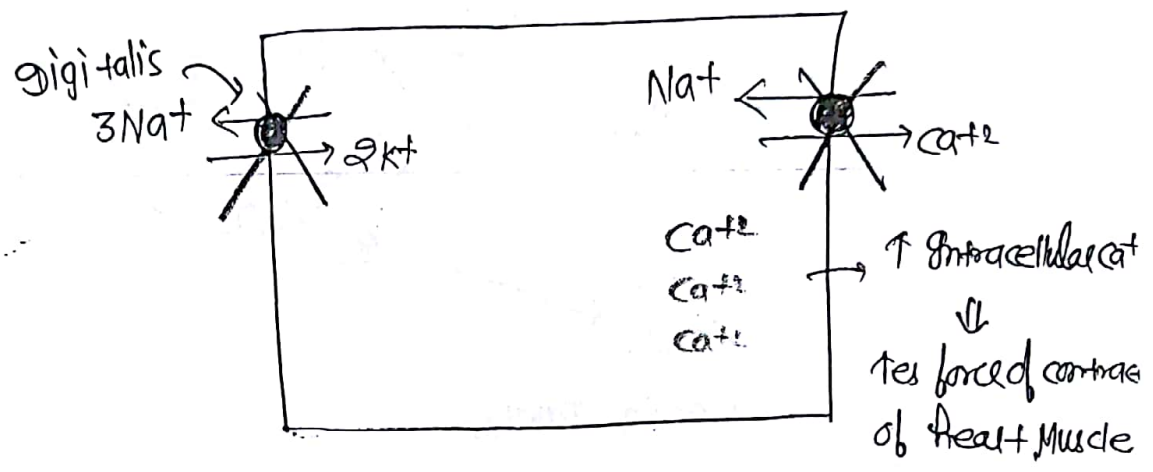 Digitalis
3Na+
2K+
Na+
Ca+2
Ca+2
Ca+2
Ca+2
↑ Intracellular Ca+
⇓
↑es force of contrac
of Heart Muscle